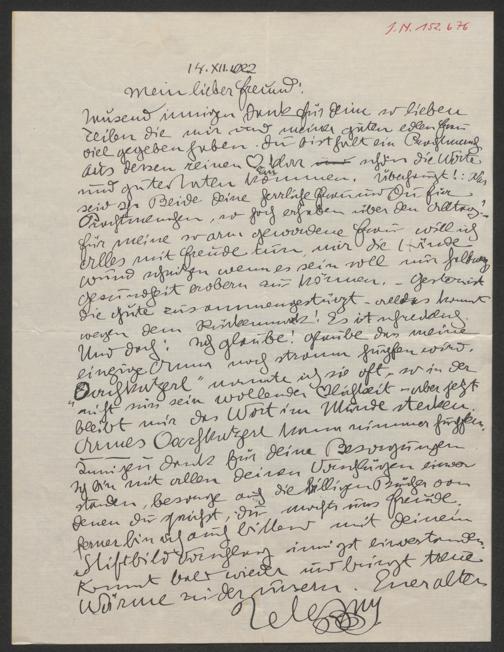 J.N. 152.676
14. XII. 1922
Mein lieber Freund!
Tausend innigen Dank für deine so lieben
Zeilen die mir und meiner guten edlen Frau
viel gegeben haben. Du bist halt ein Prachtmensch
aus dessen reinen ♡ klar schon die Worte
und guten Taten kommen. Überzeugt!: Als
seid Ihr Beide deine herrliche Frau und Du für
Prachtmenschen, so hoch erhaben über den Alltag!
für meine so arm gewordene Frau will ich
alles mit Freude tun, mir die Hände
wund schreiben wenn es sein soll nur halbweg
gesundheit erobern zu können. – Gestern ist
die Gute zusammengestürzt – alles kommt
wegen dem Rückenmark! Es ist schrecklich.
Und doch! Ich glaube! glaube das meine
einzige Anna noch stramm hupfen wird.
"Oachkatzerl" nannte ich sie oft, so in der
nicht aus sein wollenden – aber jetzt
bleibt mir das Wort im Munde stecken.
Armes Oachkatzerl kann nimmer hupfen.
Innigen Dank für deine Besorgungen
Ich bin mit allen deinen Vorschlägen einver
standen, besorge auch die billigen Bücher von
denen du sprichst, du machst uns Freude.
ferner bin ich auch mit deinem
Stiftbild Vorschlag innigst einverstanden.
Kommt bald wieder und bringt treue
Wärme zu der unsern. Euer alter